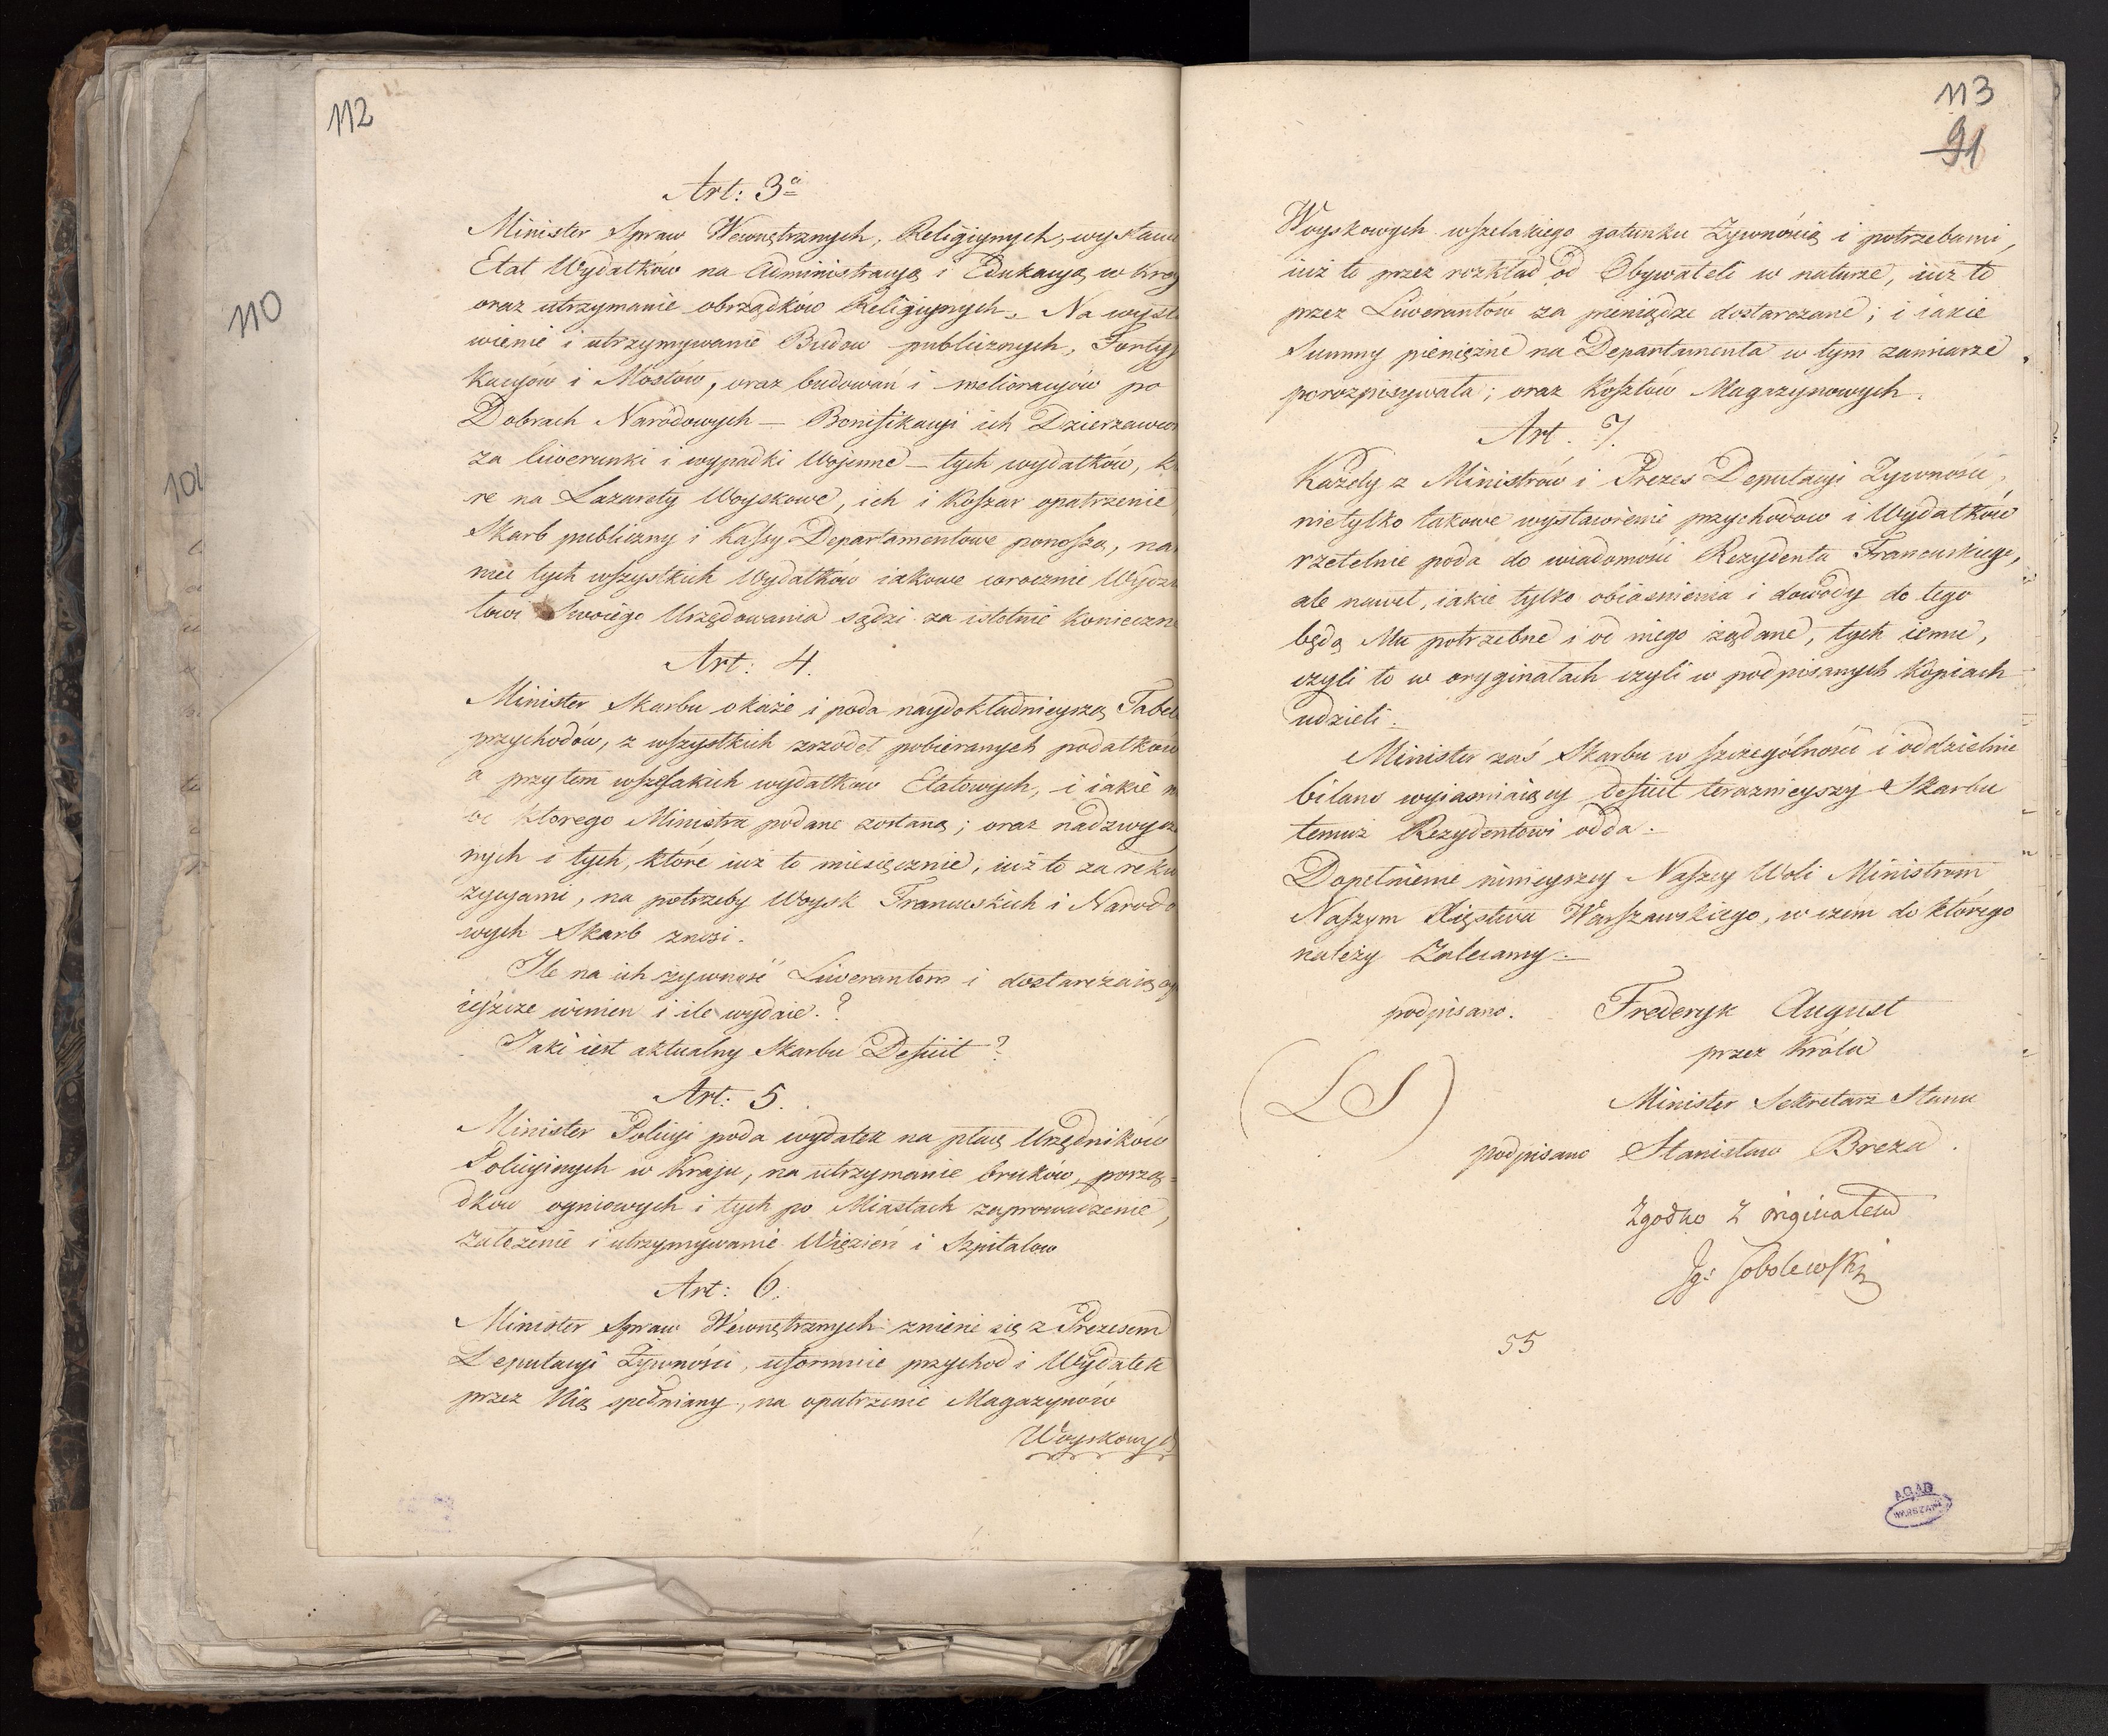 112
Art: 3a
Minister Spraw Wewnętrznych, Religiynych, wystawi
Etat Wydatków na Administracyą i Edukacyą w Kray
oraz utrzymanie obrządków Religiynych. Na wyst
wienie i utrzymywanie Budow publicznych, Fortyf
kacyów i Mostow, oraz budowań i melioracyów po
Dobrach Narodowych — Bonifikacyi ich Dzierzawcom
za liwerunki i wypadki Wojenne — tych wydatków, k
re na Lazarety Woyskowe, ich i Koszar opatrzenie
Skarb publiczny i Kassy Departamentowe ponoszą, na
niec tych wszystkich Wydatków iakowe corocznie Wydzi
łowi Swoiego Urzędowania sądzi za istotnie Konieczne
Art: 4.
Minister Skarbu okaże i poda naydokładnieyszą Tabel
przychodów, z wszystkich zrzodeł pobieranych podatków
a przytem wszelakich wydatkow Etatowych, i iakie
od ktorego Ministra podane zostaną; oraz nadzwycza
nych i tych, które iuż to miesięcznie, iuż to za rekw
zycyami, na potrzeby Woysk Francuskich i Narodo
wych Skarb znosi.
Ile na ich żywność Liwerantom i dostarczaiący
ieszcze winien i ile wydaie.?
Jaki iest aktualny Skarbu Deficit?
Art: 5.
Minister Policyi poda wydatek na płacę Urzędników
Policyinych w Kraju, na utrzymanie bruków, porzą=
dków ogniowych i tych po Miastach zaprowadzenie,
założenie i utrzymywanie Więzień i Szpitalow
Art: 6.
Minister Spraw Wewnętrznych zniene się z Prezesem
Deputacyi Żywności, uformuie przychod i Wydatek
przez Nią spełniany, na opatrzenie Magazynów
Woyskowych
113
91
Woyskowych wszelakiego gatunku Zywnością i potrzebami,
iuż to przez rozkład od Obywateli w naturze, iuż to
przez Liwerantów za pieniądze dostarczane; i iakie
Summy pieniężne na Departamenta w tym zamiarze
porozpisywała; oraz Kosztów Magazynowych.
Art. 7.
Każdy z Ministrów i Prezes Deputacyi Zywności,
nietylko takowe wystawienie przychodow i Wydatków
rzetelnie poda do wiadomości Rezydenta Francuskiego,
ale nawet, iakie tylko obiasnienia i dowody do tego
będą Mu potrzebne i od niego żądane, tych iemu,
czyli to w oryginałach czyli w podpisanych Kopiach
udzieli.
Minister zaś Skarbu w szczególności i oddzielnie
bilans wyiasniaiący deficit teraznieyszy Skarbu
temuż Rezydentowi odda.
Dopełnienie ninieyszey Naszey Woli Ministrom
Naszym Xięstwa Warszawskiego, w czém do którego
należy Zalecamy.
podpisano. Frederyk August
przez Króla
(LS)
Minister Sekretarz Stanu
podpisano Stanisław Breza.
Zgodno z originałem
Ig: Sobolewski
55
A.G.A.D.
WARSZAWA
110
101